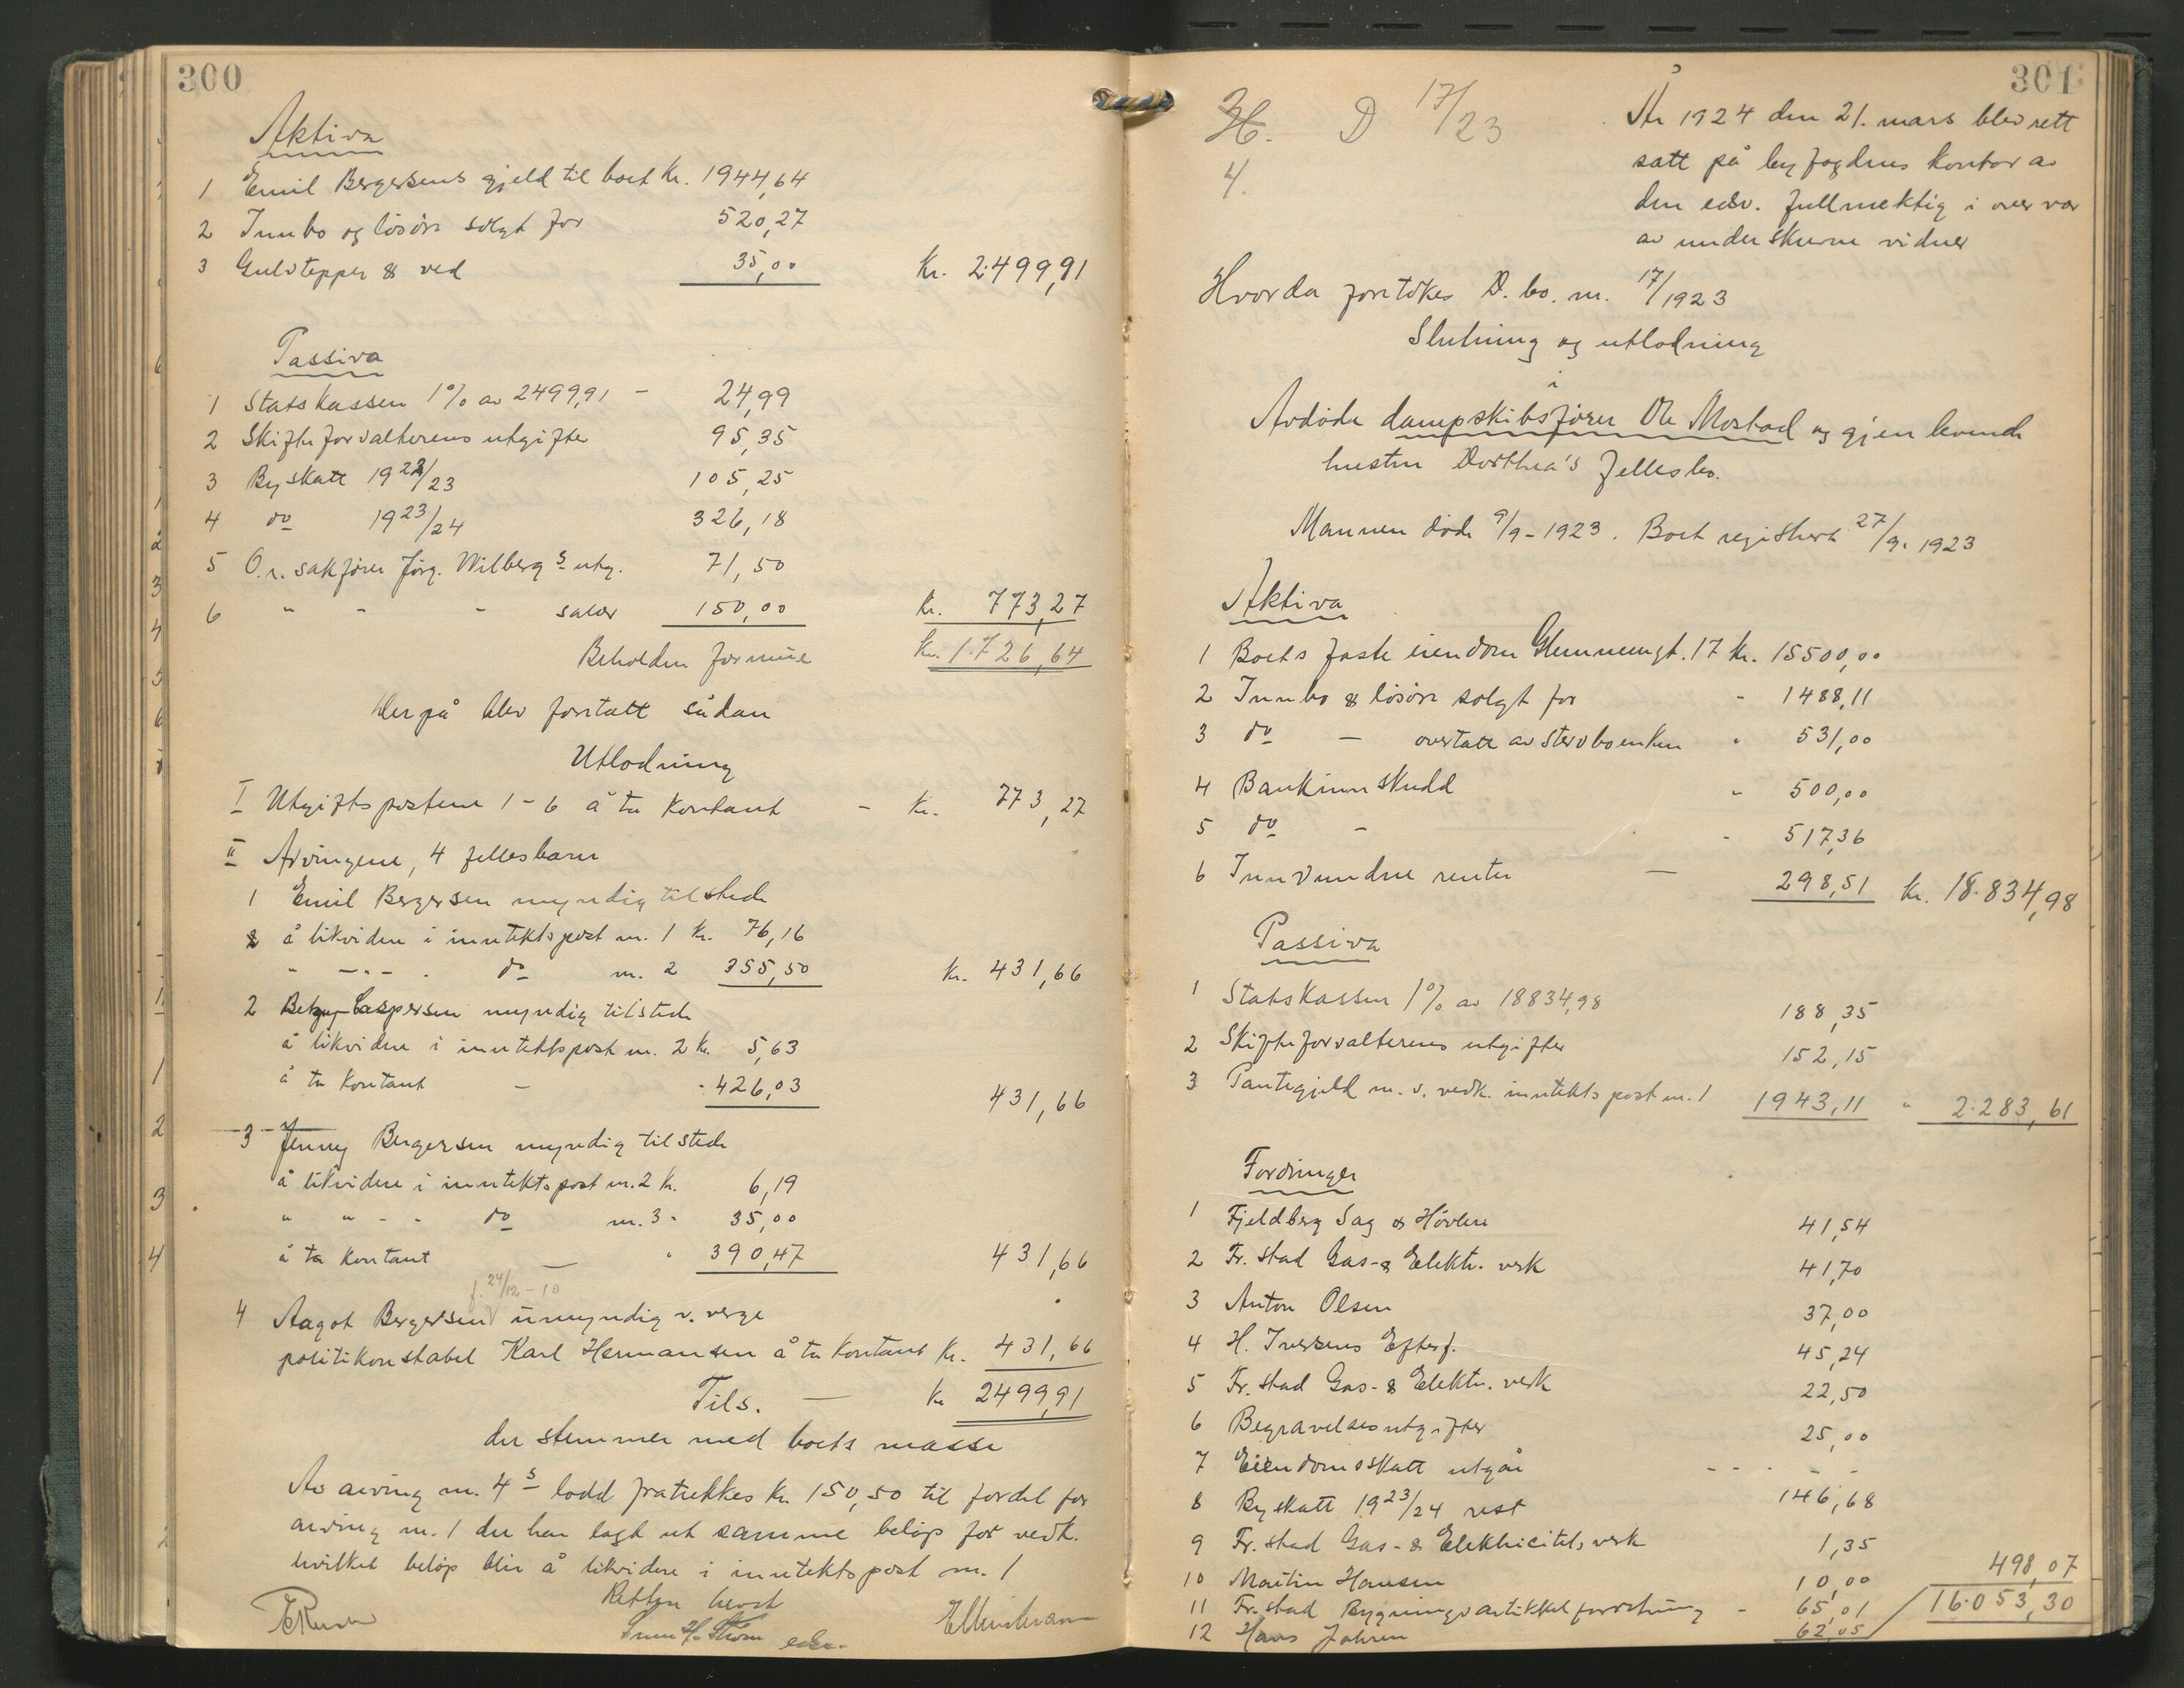 300
Aktiva
1 Emil Bergersens gjeld til boet Kr. 1944,64
2 Innbo og løsøre solgt for 520,27
3 Gulvtepper & ved 35,00 Kr. 2.499,91
Passiva
1 Statskassen 1% av 2499,91 - 24,99
2 Skifteforvalterens utgifter 95,35
3 Byskatt 1922/23 105,25
4 do 1923/24 326,18
5 O.r. sakfører Jørg. Wilberg s utg. 71,50
6 " - - salær 150,00 Kr. 773,27
Beholden formue Kr. 1.726,64
Herpå blev foretatt sådan
Utlodning
I Utgiftspostene 1-6 å ta kontant - Kr. 773,27
II Arvingene, 4 fellesbarn
1 Emil Bergersen myndig tilstede
å likvidere i inntektspost nr. 1 Kr. 76,16
" - " - - do nr. 2 355,50 Kr. 431,66
2 Caspersen myndig tilstede
å likvidere i inntektspost nr. 2 Kr. 5,63
å ta kontant - - 426,03 431,66
3 Jenny Bergersen myndig tilstede
å likvidere i inntektspost nr. 2 Kr. 6,19
" " - - do nr. 3 - 35,00
å ta kontant — " 390,47 431,66
f. 24/12 - 10
4 Aagot Bergersen umyndig v. verge
politikonstabel Karl Hermansen å ta kontant Kr. 431,66
Tils. — Kr 2499,91
der stemmer med boets masse
Av arving nr. 4 s lodd fratrekkes Kr. 150,50 til fordel for
arving nr. 1 der har lagt ut samme beløp for vedk.
hvilket beløp blir å likvidere i inntektspost nr. 1
Retten hevet
H. Strøm edsv.
301
H. D 17/23
4.
År 1924 den 21. mars blev rett
satt på byfogdens kontor av
den edsv. fullmektig i overvær
av underskrevne vidner
Hvorda foretokes D. bo. nr. 17/1923
Slutning og utlodning
i
Avdøde dampskibsfører Ole Mostad og gjenlevende
hustru Dorthea's fellesbo.
Mannen døde 9/9-1923. Boet registrert 27/9. 1923
Aktiva
1 Boets faste eiendom Glemmengt. 17 Kr. 15500,00
2 Innbo & løsøre solgt for - 1488,11
3 do - overtatt av stervboenken " 531,00
4 Bankinnskudd - 500,00
5 do - - 517,36
6 Innvundne renter — 298,51 Kr. 18.834,98
Passiva
1 Statskassen 1% av 18834,98 188,35
2 Skifteforvalterens utgifter 152,15
3 Pantegjeld m.v. vedk. inntektspost nr. 1 1943,11 " 2.283,61
Fordringer
1 Fjeldberg Sag & Høvleri 41,54
2 Fr.stad Gas- & Elektr. verk 41,70
3 Anton Olsen 37,00
4 H. Iversens Efterf. 45,24
5 Fr.stad Gas- & Elektr. verk 22,50
6 Begravelsesutgifter 25,00
7 Eiendomsskatt utgår - - - - -
8 Byskatt 1923/24 rest 146,68
9 Fr.stad Gas- & Elektricitetsverk 1,35
10 Martin Hansen 10,00 498,07
11 Fr.stad Bygningsartikkelforretning - 65,01 16.053,30
12 Hans Johren 62,05